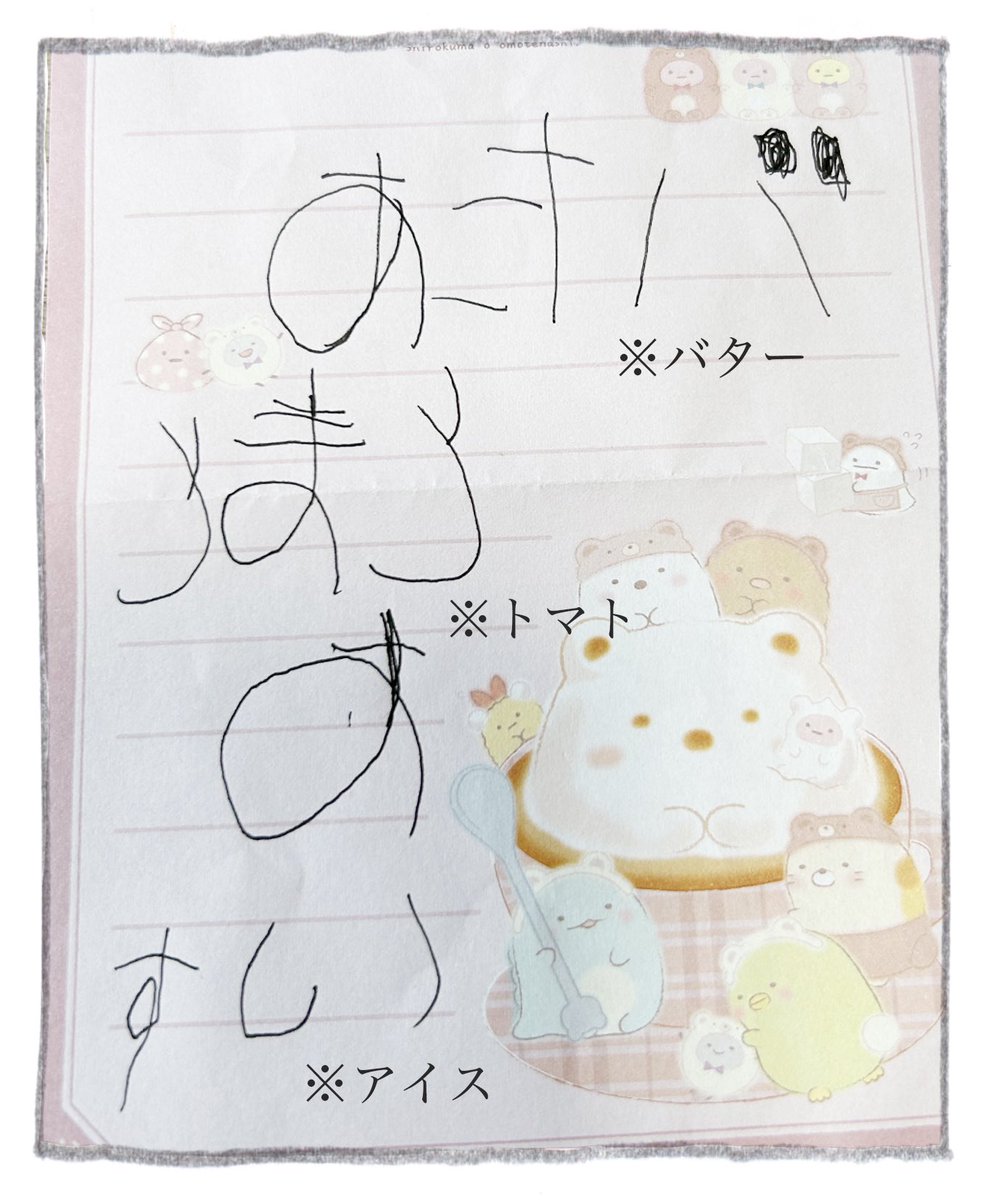 shirokuma o omotenashi
バたあ
※バター
とまと
※トマト
あ
いす
※アイス